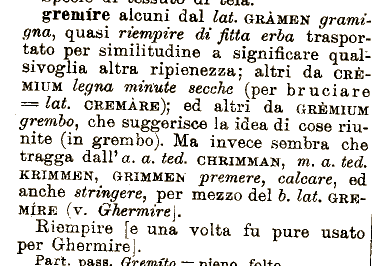 gremíre alcuni dal lat. GRÀMEN grami-
gna, quasi riempire di fitta erba traspor-
tato per similitudine a significare qual-
sivoglia altra ripienezza; altri da CRÈ-
MIUM legna minute secche (per bruciare
= lat. CREMÀRE); ed altri da GRÈMIUM
grembo, che suggerisce la idea di cose riu-
nite (in grembo). Ma invece sembra che
tragga dall'a. a. ted. CHRIMMAN, m. a. ted.
KRIMMEN, GRIMMEN premere, calcare, ed
anche stringere, per mezzo del b. lat. GRE-
MÍRE (v. Ghermire).
Riempire [e una volta fu pure usato
per Ghermire].
Part. pass. Gremíto = pieno, folto